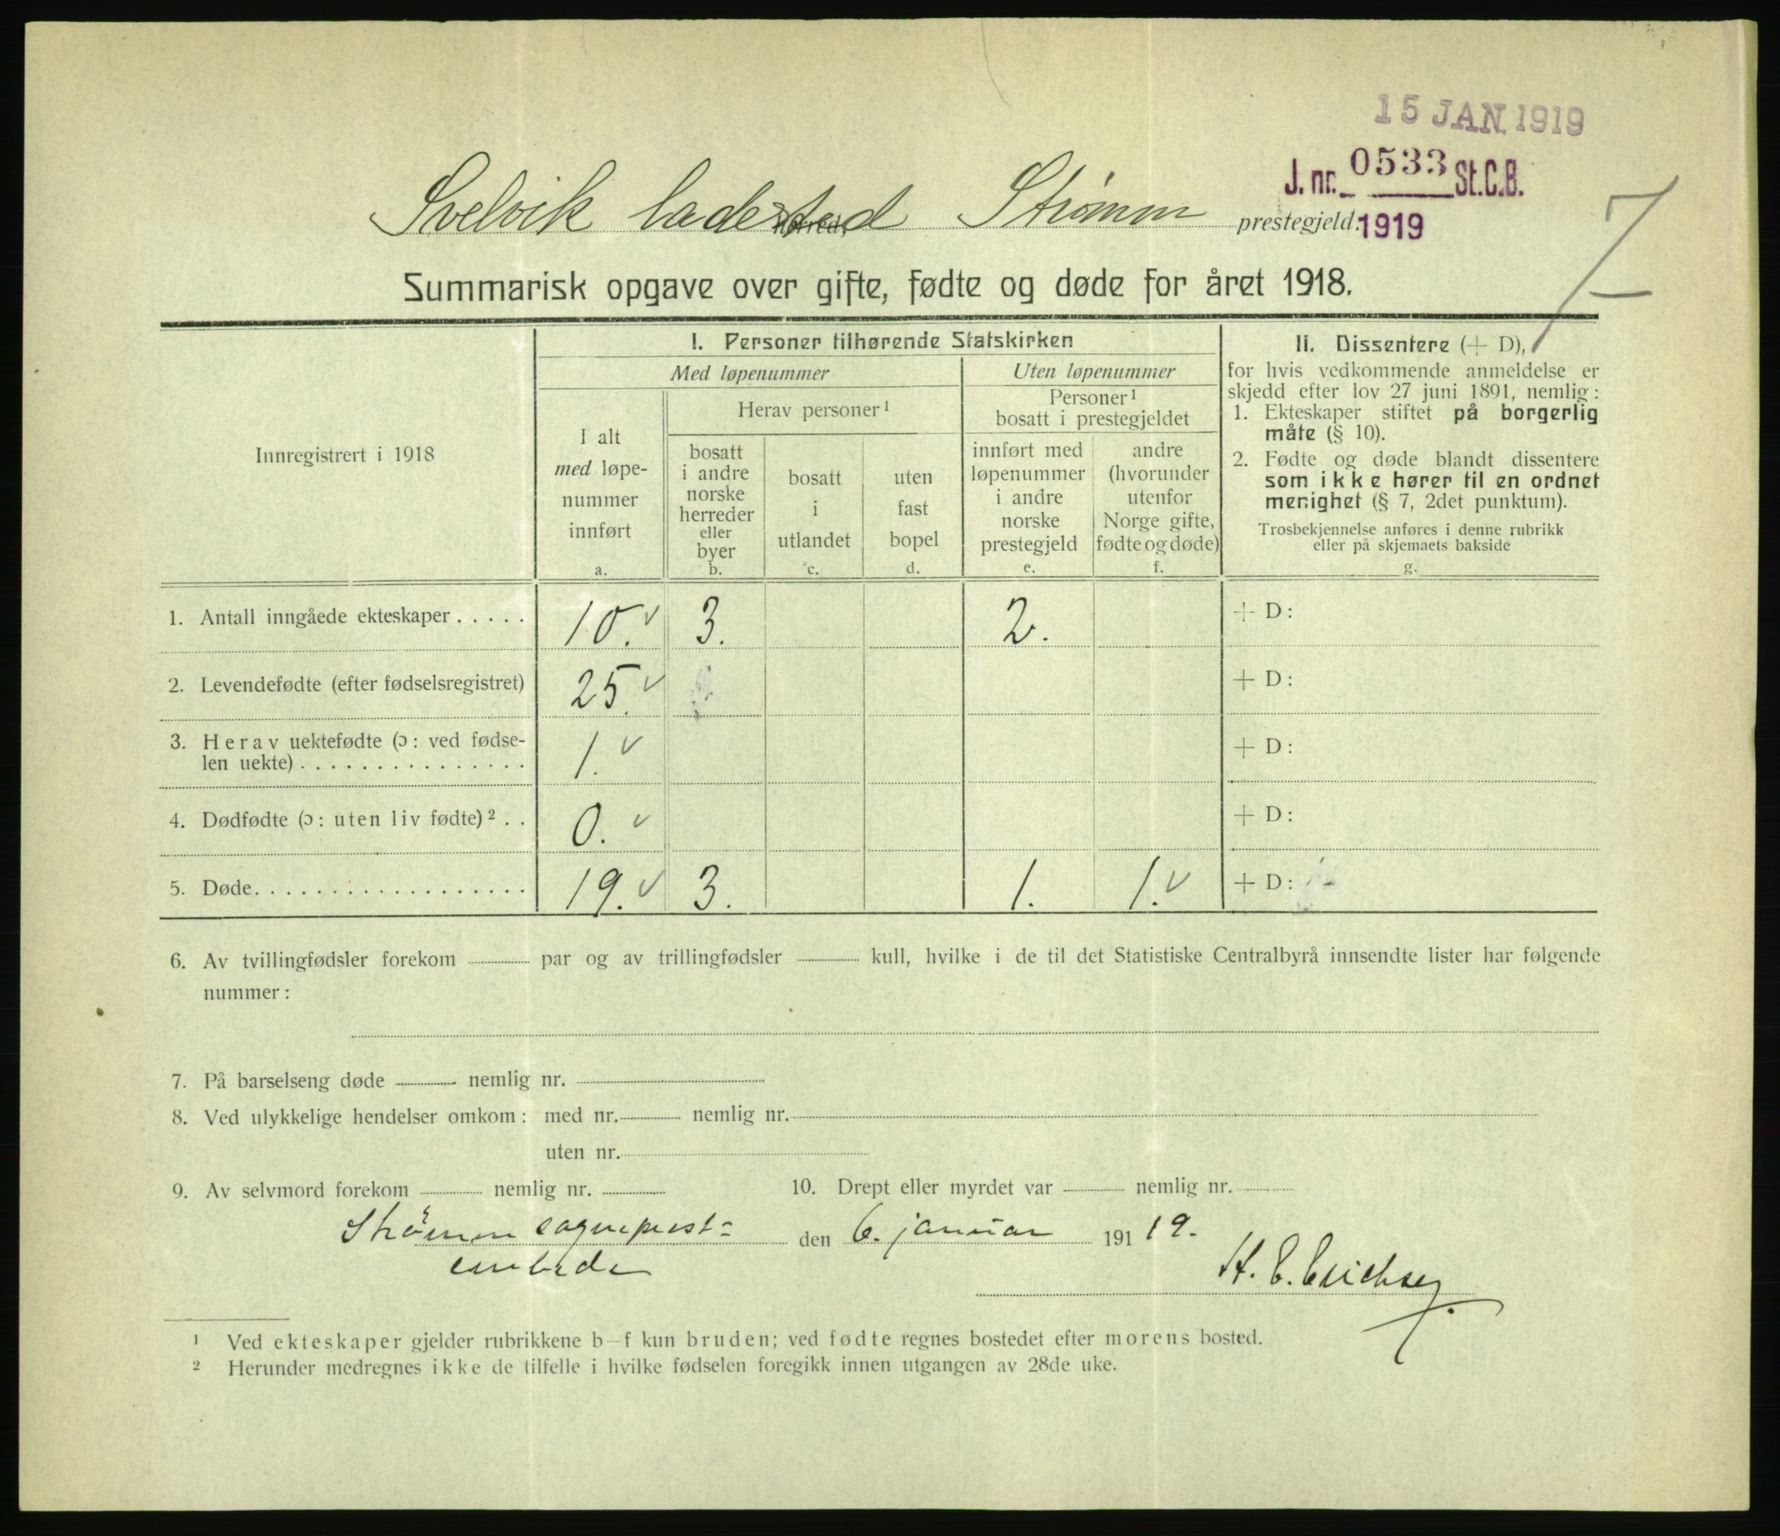 15 JAN 1919
J. nr. 0533 St.C.B.
1919
Svelvik ladested Strømm prestegjeld.
7
Summarisk opgave over gifte, fødte og døde for året 1918.
Innregistrert i 1918
I. Personer tilhørende Statskirken
Med løpenummer
Uten løpenummer
I alt
med løpe-
nummer
innført
a.
Herav personer¹
bosatt
i andre
norske
herreder
eller
byer
b.
bosatt
i
utlandet
c.
uten
fast
bopel
d.
Personer¹
bosatt i prestegjeldet
innført med
løpenummer
i andre
norske
prestegjeld
e.
andre
(hvorunder
utenfor
Norge gifte,
fødte og døde)
f.
II. Dissentere (+ D),
for hvis vedkommende anmeldelse er
skjedd efter lov 27 juni 1891, nemlig:
1. Ekteskaper stiftet på borgerlig
måte (§ 10).
2. Fødte og døde blandt dissentere
som ikke hører til en ordnet
menighet (§ 7, 2det punktum).
Trosbekjennelse anføres i denne rubrikk
eller på skjemaets bakside
g.
1. Antall inngåede ekteskaper . . . . . 10. v 3. 2. + D:
2. Levendefødte (efter fødselsregistret) 25. v + D:
3. Herav uektefødte (ɔ: ved fødse-
len uekte) . . . . . . . . . . . . . . . 1. v + D:
4. Dødfødte (ɔ: uten liv fødte)² . . 0. v + D:
5. Døde. . . . . . . . . . . . . . . . . . 19. v 3. 1. 1. v + D:
6. Av tvillingfødsler forekom par og av trillingfødsler kull, hvilke i de til det Statistiske Centralbyrå innsendte lister har følgende
nummer:
7. På barselseng døde nemlig nr.
8. Ved ulykkelige hendelser omkom: med nr. nemlig nr.
uten nr.
9. Av selvmord forekom nemlig nr. 10. Drept eller myrdet var nemlig nr.
Strømm sogneprest- den 6. januar 191 19.
embede
H. E. Erichsen.
¹ Ved ekteskaper gjelder rubrikkene b–f kun bruden; ved fødte regnes bostedet efter morens bosted.
² Herunder medregnes ikke de tilfelle i hvilke fødselen foregikk innen utgangen av 28de uke.